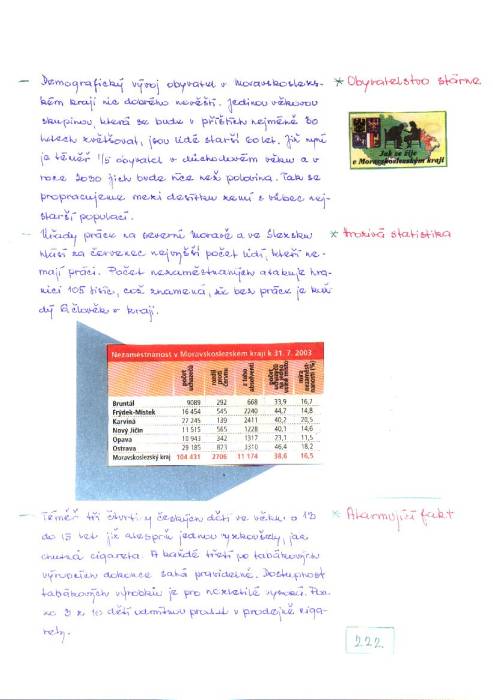 - Demografický vývoj obyvatel v Moravskoslezs-
kém kraji nic dobrého nevěští. Jedinou věkovou
skupinou, která se bude v příštích nejméně 30
letech zvětšovat, jsou lidé starší 60 let. Již nyní
je téměř 1/5 obyvatel v důchodovém věku a v
roce 2030 jich bude více než polovina. Tak se
propracujeme mezi desítku zemí s vůbec nej-
starší populací.
* Obyvatelstvo stárne
Jak se žije
v Moravskoslezském kraji
- Úřady práce na severní Moravě a ve Slezsku
hlásí za červenec nejvyšší počet lidí, kteří ne-
mají práci. Počet nezaměstnaných atakuje hra-
nici 105 tisíc, což znamená, že bez práce je kaž-
dý 6. člověk v kraji.
* hrozivá statistika
Nezaměstnanost v Moravskoslezském kraji k 31. 7. 2003
počet uchazečů
rozdíl proti červnu
z toho absolventi
počet uchazečů na jedno volné místo
míra nezaměst-nanosti (%)
Bruntál 9089 292 668 33,9 16,7
Frýdek-Místek 16 454 545 2240 44,7 14,8
Karviná 27 245 139 2411 40,2 20,5
Nový Jičín 11 515 565 1228 40,1 14,6
Opava 10 943 342 1317 23,1 11,5
Ostrava 29 185 823 3310 46,4 18,2
Moravskoslezský kraj 104 431 2706 11 174 38,6 16,5
- Téměř tři čtvrtiny českých dětí ve věku
do 15 let již alespoň jednou vyzkoušely, jak
chutná cigareta. A každé třetí po tabákových
výrobcích dokonce sahá pravidelně. Dostupnost
tabákových výrobků je pro nezletilé vysoká.
no 3 z 10 dětí odmítnou prodat v prodejně ciga-
rety.
* Alarmující fakt
222.